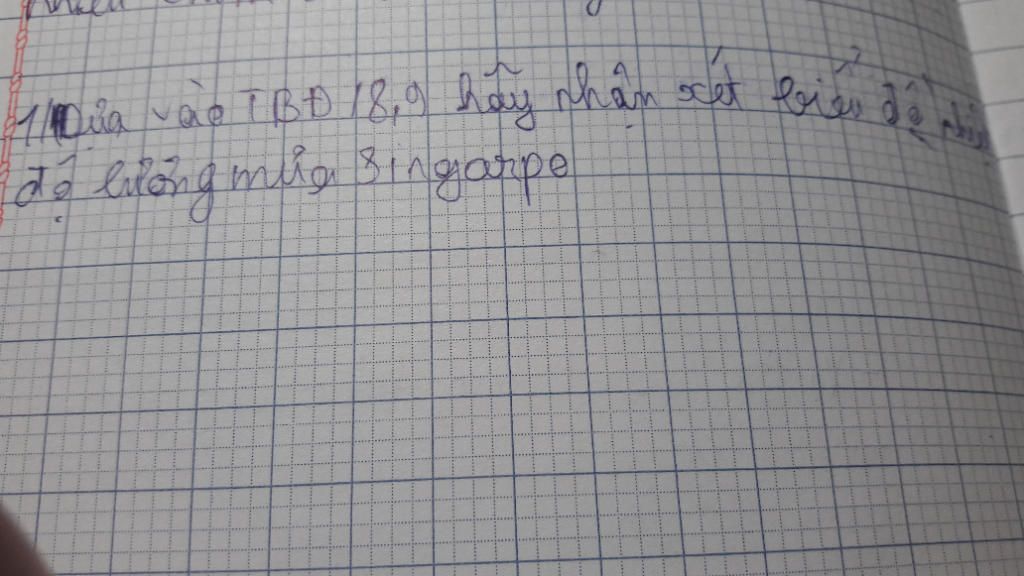 1/ Dựa vào TBĐ 18,9 hãy nhận xét biểu đồ nhiệt
độ lượng mưa Singarpo